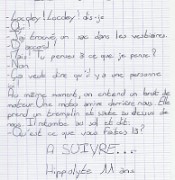 - Locploy ! Locdoy ! dis-je
- Oui
- J'ai trouvé un sac dans les vestiaires.
- D'accord !
- Mais ! Tu penses à ce que je pense ?
- Non.
- Ça veut dire qu'il y a une personne
Au même moment, on entend un bruit de
moteur. Une moto arrive derrière nous. Elle
prend un tremplin et saute au dessus de
nous. Il retombe au sol et dit:
- Qu'est ce que vous faites là ?
A SUIVRE....
Hippolyte 11 ans